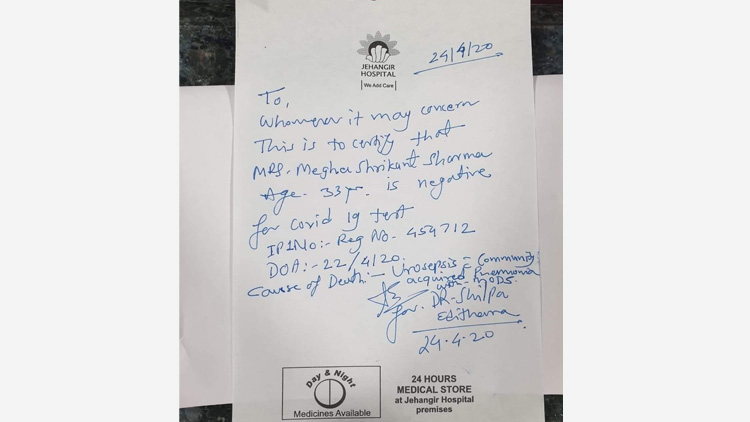 JEHANGIR
HOSPITAL
We Add Care
24/4/20
To,
Whomever it may concern
This is to certify that
MRS. Megha Shrikant Sharma
Age - 33yr. is negative
for covid 19 test
IP1No:- Reg No- 454712
DOA:- 22/4/20.
Causse of Death:- Urosepsis = Community
acquired Pneumonia
with MODS.
for. DR-Shilpa
24.4.20
Day & Night
Medicines Available
24 HOURS
MEDICAL STORE
at Jehangir Hospital
premises